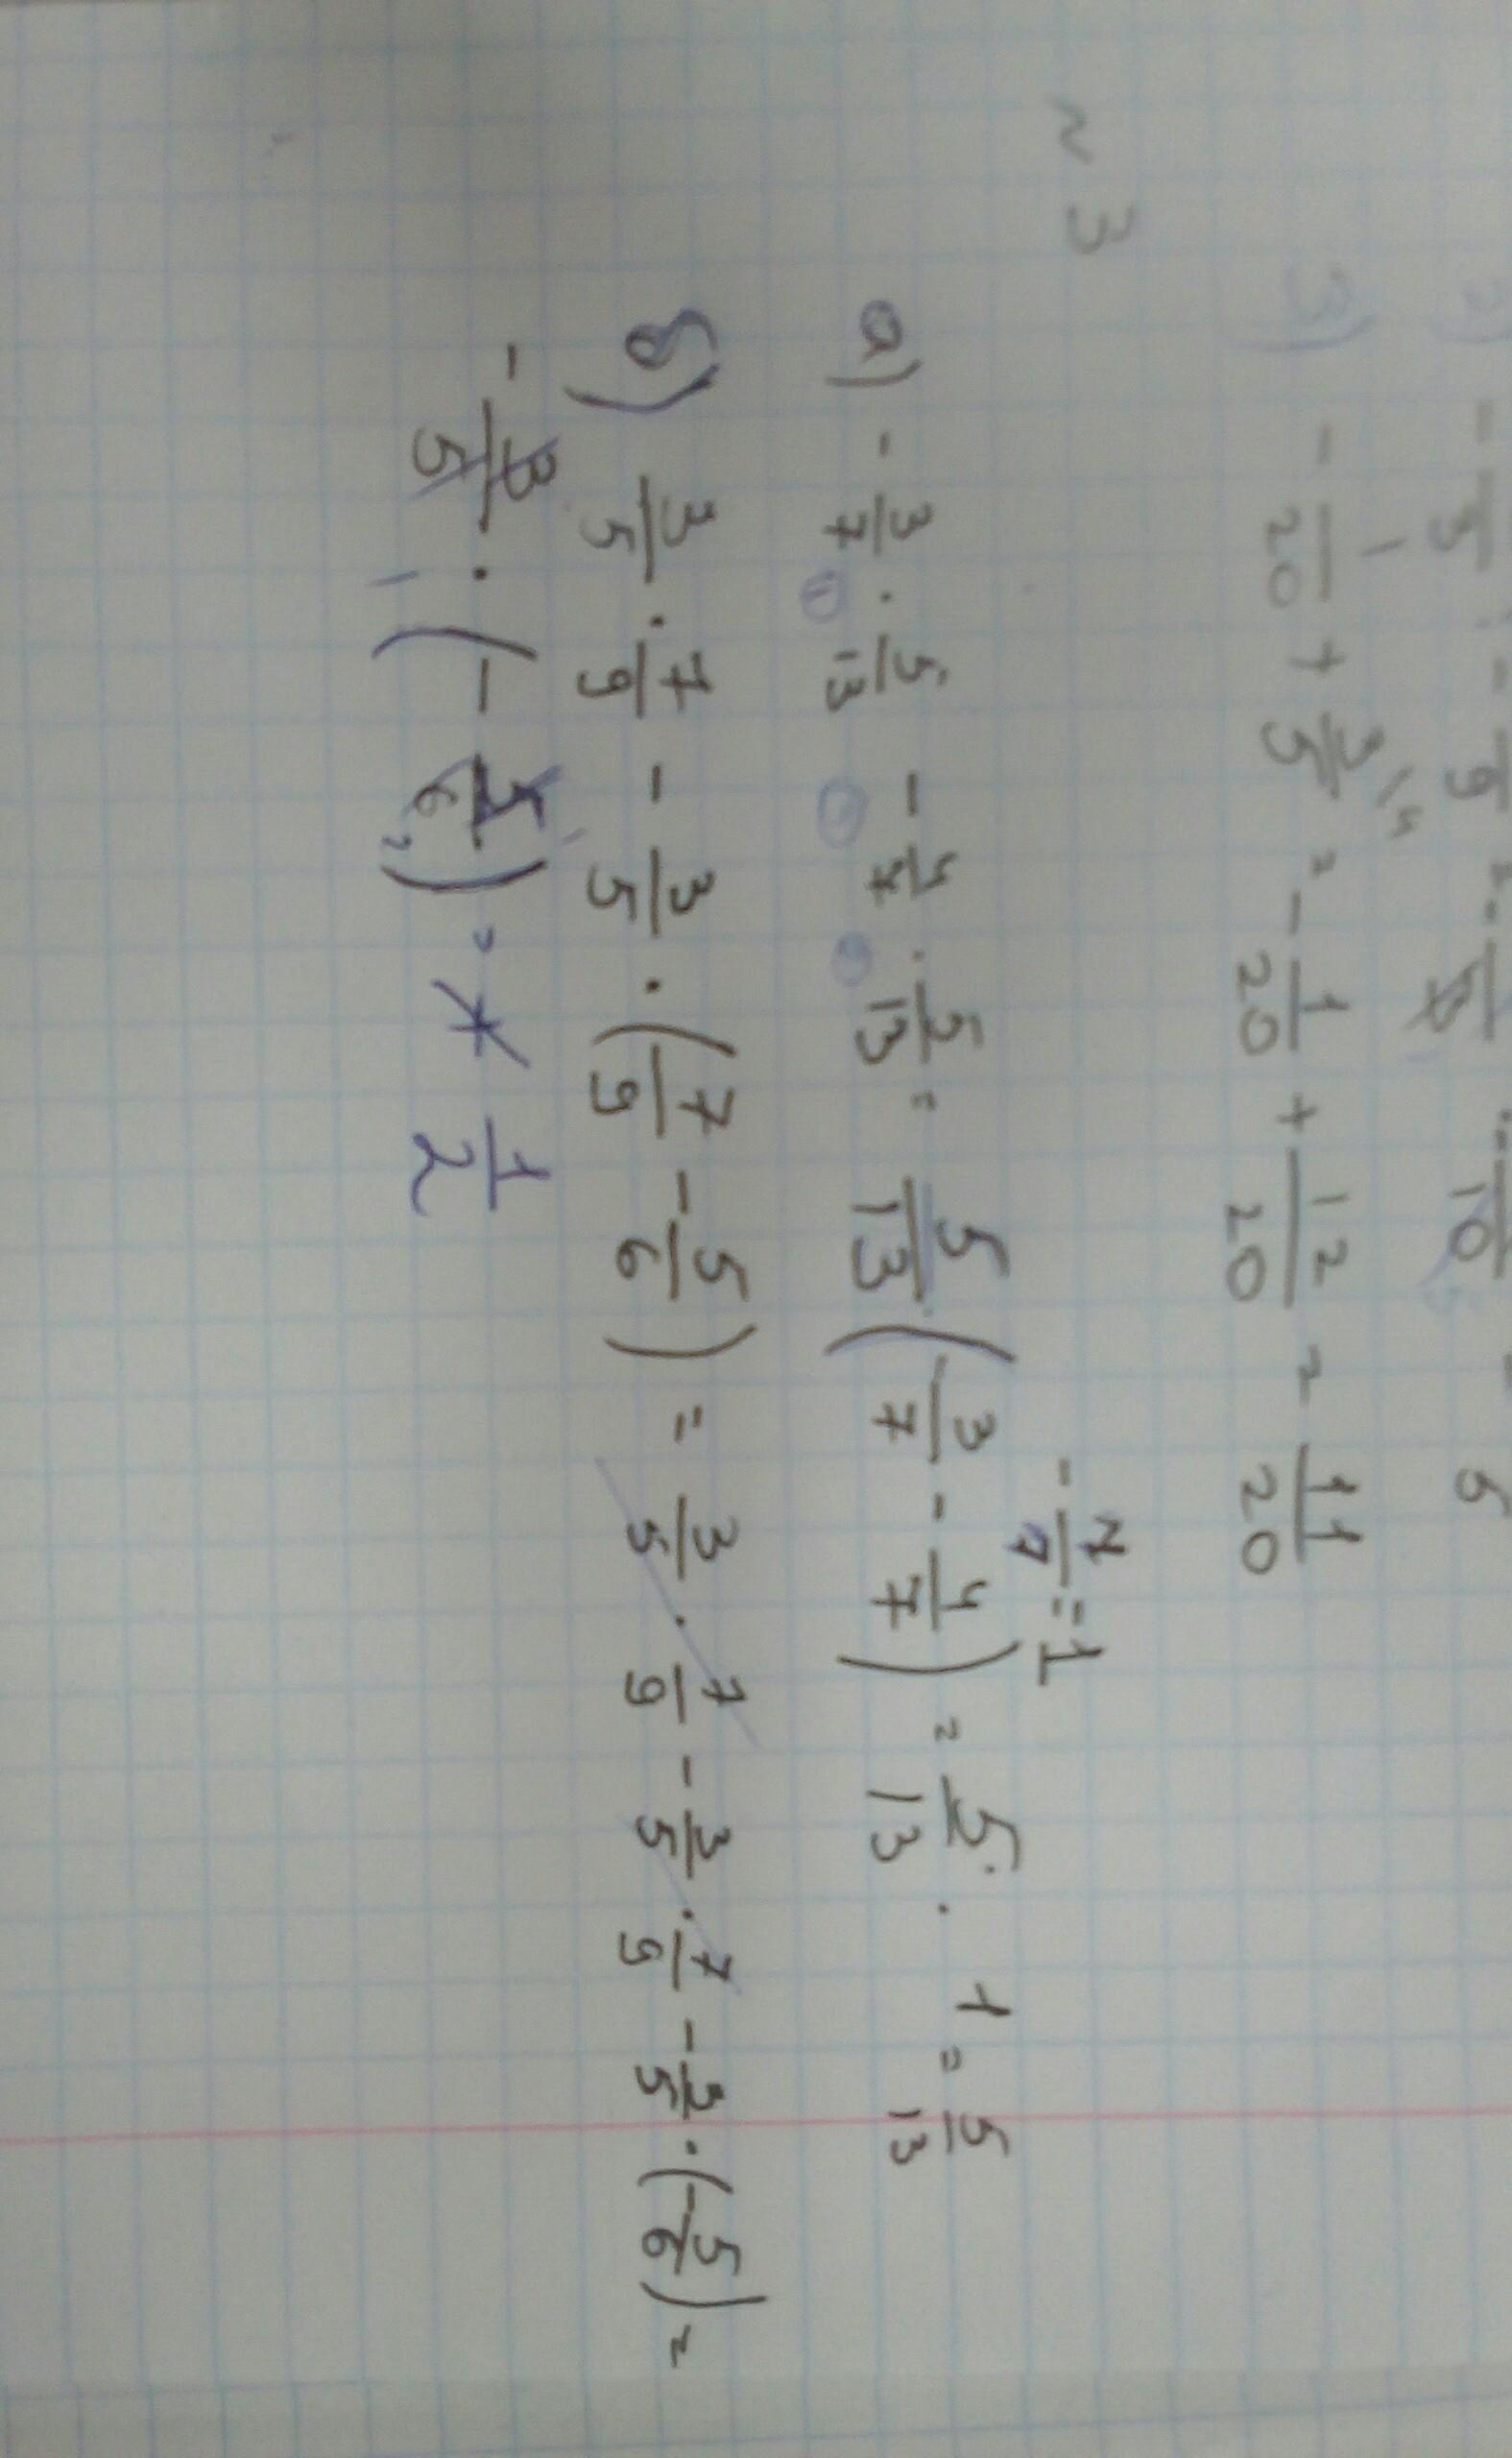 3) - 1/20 + 3/5 = - 1/20 + 12/20 = 11/20
~ 3
- 7/7 = 1
а) - 3/7 · 5/13 - 4/7 · 5/13 = 5/13 (- 3/7 - 4/7) = 5/13 · 1 = 5/13
б) 3/5 · 7/9 - 3/5 · (7/9 - 5/6) = 3/5 · 7/9 - 3/5 · 7/9 - 3/5 · (- 5/6) =
- 3/5 · (- 5/6) = 1/2